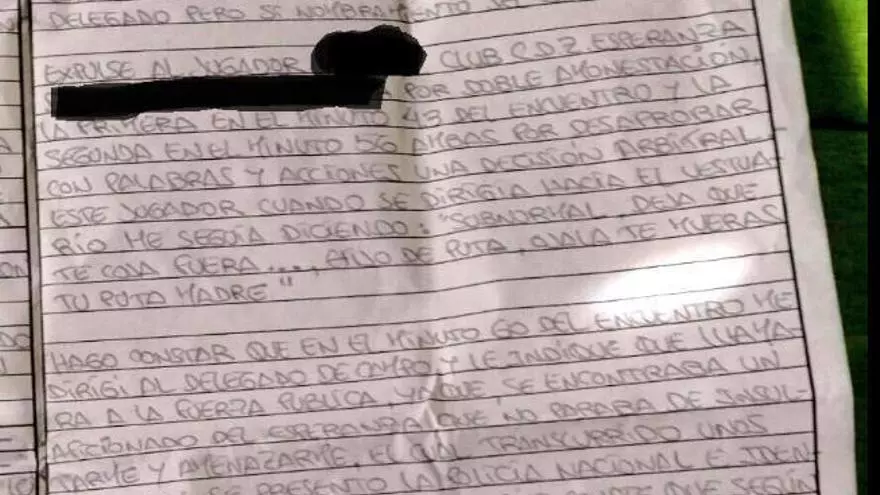 DELEGADO PERO SI NOMBRAMIENTO
EXPULSE AL JUGADOR CLUB C.D.Z. ESPERANZA
POR DOBLE AMONESTACIÓN,
LA PRIMERA EN EL MINUTO 43 DEL ENCUENTRO Y LA
SEGUNDA EN EL MINUTO 56 AMBAS POR DESAPROBAR
CON PALABRAS Y ACCIONES UNA DECISIÓN ARBITRAL,
ESTE JUGADOR CUANDO SE DIRIGIA HACIA EL VESTUA-
RIO ME SEGUÍA DICIENDO: "SUBNORMAL, DEJA QUE
TE COJA FUERA...., HIJO DE PUTA, OJALA TE MUERAS
TU PUTA MADRE"
HAGO CONSTAR QUE EN EL MINUTO 60 DEL ENCUENTRO ME
DIRIGI AL DELEGADO DE CAMPO Y LE INDIQUE QUE LLAMA-
RA A LA FUERZA PUBLICA, YA QUE, SE ENCONTRABA UN
AFICIONADO DEL ESPERANZA QUE NO PARABA DE INSUL-
TARME Y AMENAZARME, EL CUAL TRANSCURRIDO UNOS
SE PRESENTO LA POLICÍA NACIONAL E IDEN-
QUE SEGÚN